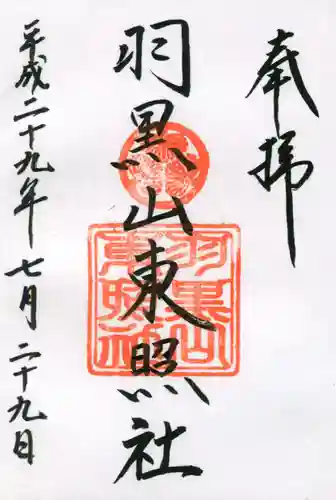 奉拝
羽黒山東照社
平成二十九年七月二十九日
羽黒山
東照社